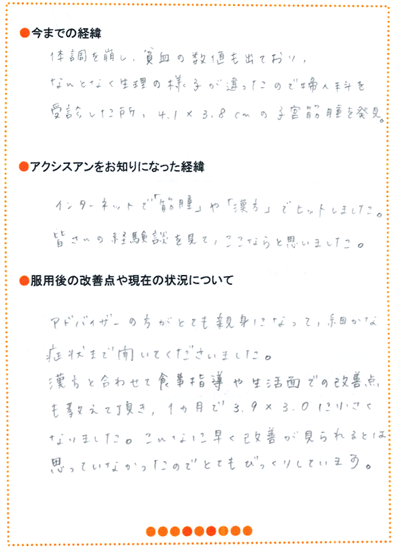 ●今までの経緯
体調を崩し、貧血の数値も出ており、
なんとなく生理の様子が違ったので婦人科を
受診した所、4.1×3.8cmの子宮筋腫を発見。
●アクシスアンをお知りになった経緯
インターネットで「筋腫」や「漢方」でヒットしました。
皆さんの経験談を見て、ここならと思いました。
●服用後の改善点や現在の状況について
アドバイザーの方がとても親身になって、細かな
症状まで聞いてくださいました。
漢方と合わせて食事指導や生活面での改善点
も教えて頂き、1ヶ月で3.9×3.0に小さく
なりました。こんなに早く改善が見られるとは
思っていなかったのでとてもびっくりしています。